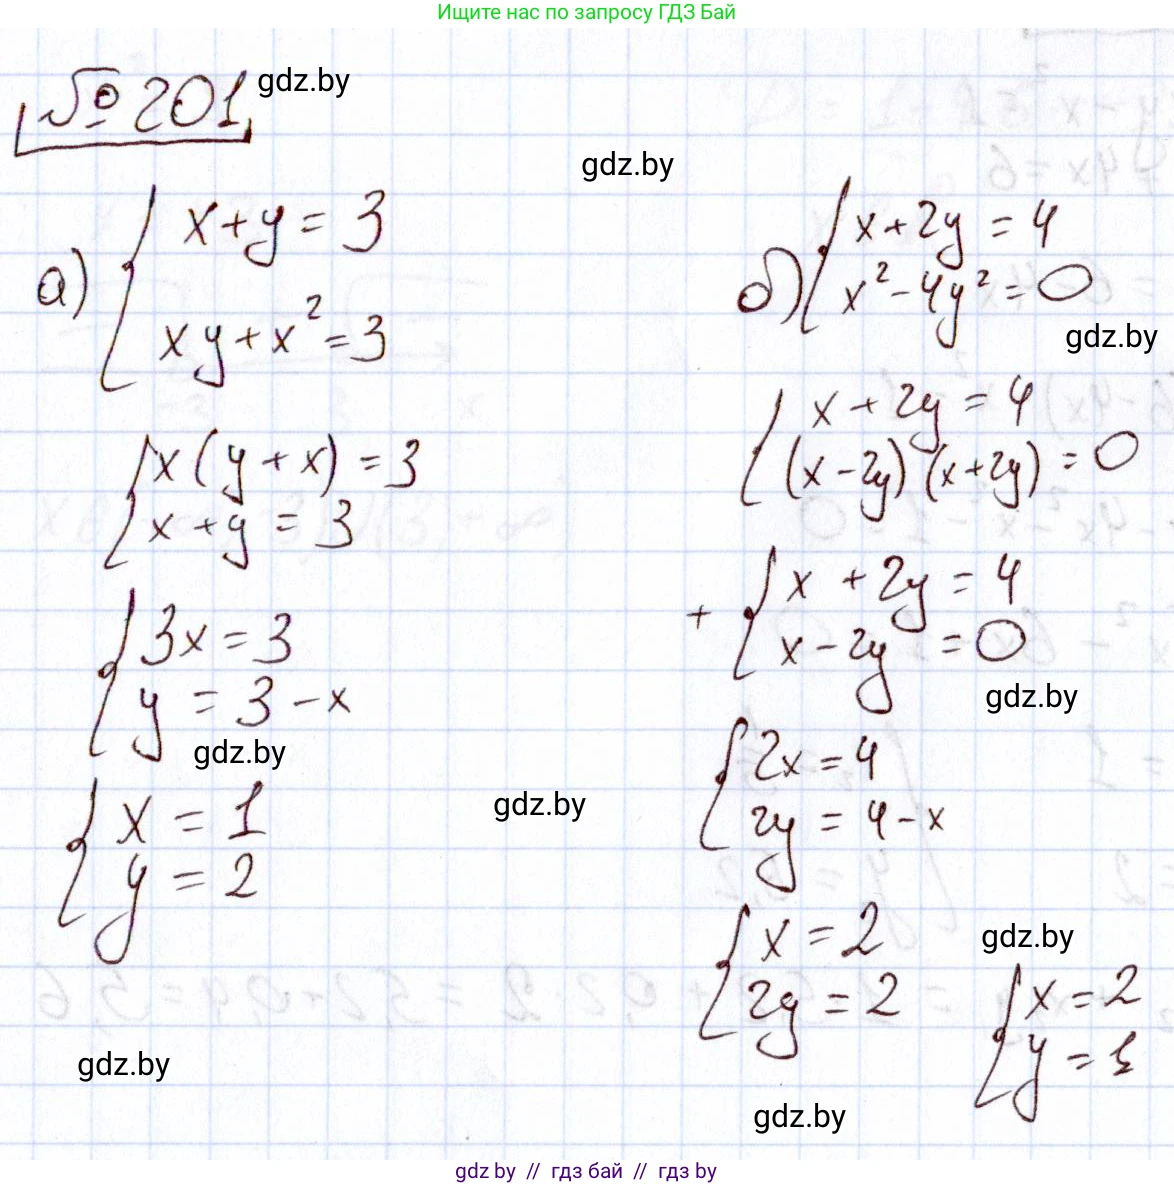 Ищите нас по запросу ГДЗ Бай
№ 201
gdz.by
gdz.by
а) { x + y = 3
xy + x² = 3
{ x (y + x) = 3
x + y = 3
{ 3x = 3
y = 3 - x
gdz.by
{ x = 1
y = 2
gdz.by
gdz.by
б) { x + 2y = 4
x² - 4y² = 0
gdz.by
{ x + 2y = 4
(x - 2y) (x + 2y) = 0
+ { x + 2y = 4
x - 2y = 0
gdz.by
{ 2x = 4
2y = 4 - x
{ x = 2
2y = 2
gdz.by
{ x = 2
y = 1
gdz.by
gdz by // гдз бай // гдз by